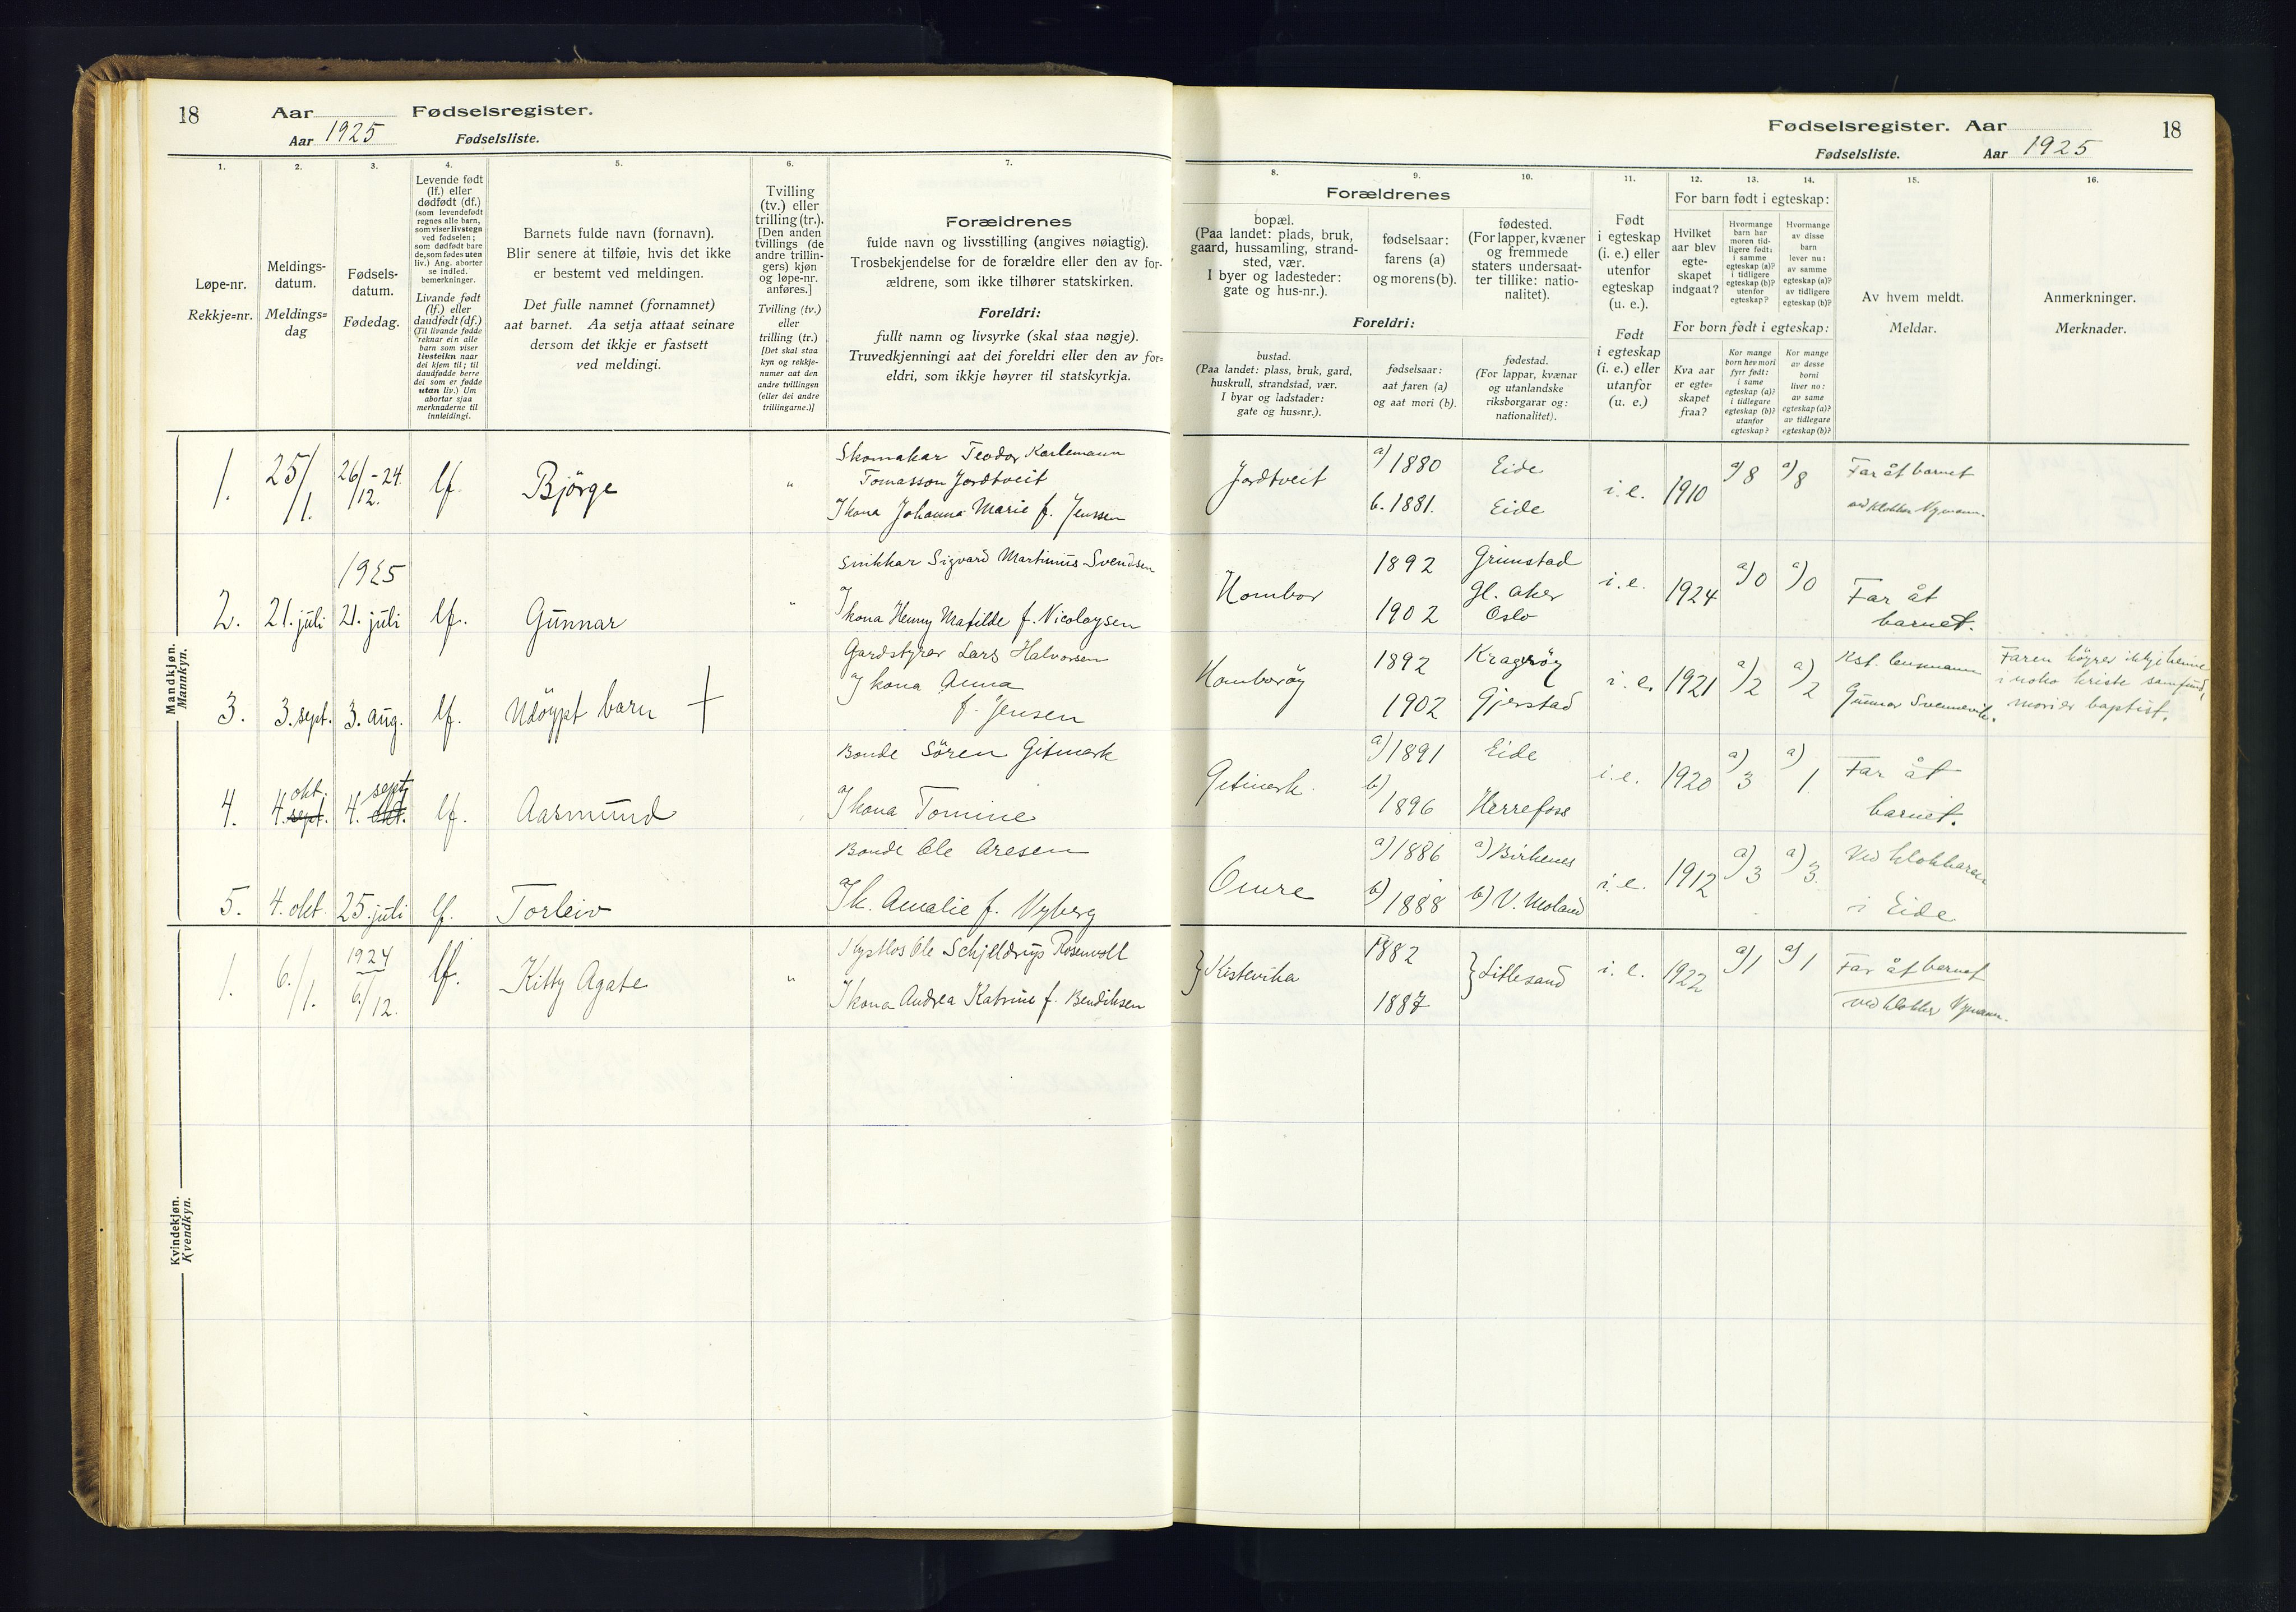 18
Aar
Fødselsregister.
Aar 1925
Fødselsliste.
1.
2.
3.
4.
5.
6.
7.
Løpe-nr.
Rekkje=nr.
Meldings-
datum.
Meldings=
dag
Fødsels-
datum.
Fødedag.
Levende født
(lf.) eller
dødfødt (df.)
(som levendefødt
regnes alle barn,
som viser livstegn
ved fødselen;
som dødfødt bare
de, som fødes uten
liv.) Ang. aborter
se indled.
bemerkninger.
Livande født
(lf.) eller
daudfødt (df.)
(Til livande fødde
reknar ein alle
barn som viser
livsteikn naar
dei kjem til; til
daudfødde berre
dei som er fødde
utan liv.) Um
abortar sjaa
merknaderne til
innleidingi.
Barnets fulde navn (fornavn).
Blir senere at tilføie, hvis det ikke
er bestemt ved meldingen.
Det fulle namnet (fornamnet)
aat barnet. Aa setja attaat seinare
dersom det ikkje er fastsett
ved meldingi.
Tvilling
(tv.) eller
trilling (tr.).
[Den anden
tvillings (de
andre trillin-
gers) kjøn
og løpe-nr.
anføres.]
Tvilling (tv.)
eller
trilling (tr.)
[Det skal staa
kyn og rekkje-
numer aat den
andre tvillingen
(eller dei andre
trillingarne.)]
Forældrenes
fulde navn og livsstilling (angives nøiagtig).
Trosbekjendelse for de forældre eller den av for-
ældrene, som ikke tilhører statskirken.
Foreldri:
fullt namn og livsyrke (skal staa nøgje).
Truvedkjenningi aat dei foreldri eller den av for=
eldri, som ikkje høyrer til statskyrkja.
Mandkjøn.
Mannkyn.
1. 25/1. 26/12.-24. lf. Björge "
Skomakar Teodor Karlemann
Tomasson Jordtveit
Jkona Johanna Marie f. Jenssen
1925
2. 21. juli 21. juli lf. Gunnar "
Snikkar Sigvard Martinius Svendsen
Jkona Henny Matilde f. Nicolaysen
3. 3. sept. 3. aug. lf. Udöypt barn +
Gardstyrer Lars Halvorsen
Jkona Anna
f. Jensen
4. 4. sept. okt. 4. okt. sept. lf. Aasmund
Bonde Sören Gitmark
Jkona Tomine
5. 4. okt. 25. juli lf. Torleiv
Bonde Ole Aresen
Jk. Amalie f. Nyberg
Kvindekjøn.
Kvendkyn.
1. 6./1. 1924 6./12. lf. Kitty Agate "
Ole Schjeldrup Rosenvoll
Jkona Andrea Katrine f. Bendiksen
Fødselsregister. Aar
18
Fødselsliste.
Aar 1925
8.
9.
10.
11.
12.
13.
14.
15.
16.
Forældrenes
bopæl.
(Paa landet: plads, bruk,
gaard, hussamling, strand-
sted, vær.
I byer og ladesteder:
gate og hus-nr.).
fødselsaar:
farens (a)
og morens (b).
fødested.
(For lapper, kvæner
og fremmede
staters undersaat-
ter tillike: natio-
nalitet).
Foreldri:
bustad.
(Paa landet: plass, bruk, gard,
huskrull, strandstad, vær.
I byar og ladstader:
gate og hus=nr.).
fødselsaar:
aat faren (a)
og aat mori (b).
fødestad.
(For lappar, kvænar
og utanlandske
riksborgarar og:
nationalitet).
Født
i egteskap
(i. e.) eller
utenfor
egteskap
(u. e.).
Født
i egteskap
(i. e.) eller
utanfor
(u. e.)
For barn født i egteskap:
Hvilket
aar blev
egte-
skapet
indgaat?
Hvormange
barn har
moren tid-
ligere født:
i samme
egteskap (a)?
i tidligere
egteskap (b)?
utenfor
egteskap?
Hvormange
av disse
barn
lever nu:
av samme
egteskap (a)?
av tidligere
egteskap (b)?
For born født i egteskap:
Kva aar
er egte=
skapet
fraa?
Kor mange
born hev mori
fyrr født:
i same
egteskap (a)?
i tidlegare
egteskap (b)?
utanfor
egteskap?
Kor mange
av desse
borni
liver no:
av same
egteskap (a)?
av tidlegare
egteskap (b)?
Av hvem meldt.
Meldar.
Anmerkninger.
Merknader.
Jordtveit a) 1880 Eide i. e. 1910 a) 8 a) 8 Far åt barnet
b. 1881. Eide ved klokker Nymann.
Hombor 1892 Grimstad i. e. 1924 a) 0 a) 0 Far åt
1902 Gl. Aker
Oslo barnet.
Homborøy 1892 Kragerøy i. e. 1921 a) 2 a) 2 Kst. lensmann
1902 Gjerstad Gunnar
Faren høyrer ikkje heime
i noko kriste samfund,
mori er baptist.
Gitmark. a) 1891 Eide i. e. 1920 a) 3 a) 1. Far åt
b) 1896 Herrefoss barnet.
Omre a) 1886 a) Birkenes i. e. 1912 a) 3 a) 3. Ved klokkaren
b) 1888 b) V. Moland i Eide
} Kistevika 1882 } Lillesand i. e. 1922 a) 1 a) 1 Far åt barnet
1887 ved klokker Nymann.